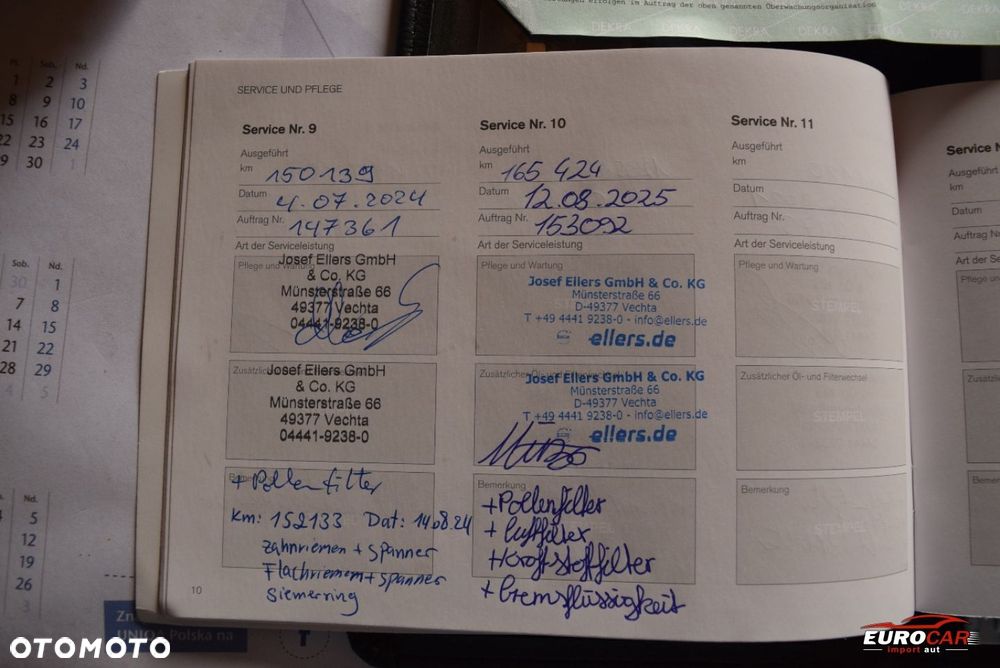 erfolgen im Auftrag der oben genannten Überwachungsorganisation
DEKRA DEKRA DEKRA DEKRA
Sob. Nd.
1 2 3
8 9 10
15 16 17
22 23 24
29 30 1
Sob. Nd.
30 1
7 8
14 15
21 22
28 29
4 5
Nd.
5
12
19
26
3
SERVICE UND PFLEGE
Service Nr. 9
Ausgeführt
km 150139
Datum 4.07.2024
Auftrag Nr. 147361
Art der Serviceleistung
Pflege und Wartung
Josef Ellers GmbH
& Co. KG
Münsterstraße 66
49377 Vechta
04441-9238-0
Josef Ellers GmbH
& Co. KG
Münsterstraße 66
49377 Vechta
04441-9238-0
+ Pollenfilter
Km: 152133 Dat: 14.08.24
Zahnriemen + Spanner
Flachriemen + Spanner
Siemerring
10
Service Nr. 10
Ausgeführt
km 165 424
Datum 12.08.2025
Auftrag Nr. 153092
Art der Serviceleistung
Pflege und Wartung
Josef Ellers GmbH & Co. KG
Münsterstraße 66
D-49377 Vechta
T +49 4441 9238-0 - info@ellers.de
ellers.de
Zusätzlicher Öl- und Filterwechsel
Josef Ellers GmbH & Co. KG
Münsterstraße 66
D-49377 Vechta
T +49 4441 9238-0 - info@ellers.de
ellers.de
Bemerkung
+Pollenfilter
+ Luftfilter
+Kraftstofffilter
+ Bremsflüssigkeit
Service Nr. 11
Ausgeführt
km
Datum
Auftrag Nr.
Art der Serviceleistung
Pflege und Wartung
STEMPEL
Zusätzlicher Öl- und Filterwechsel
STEMPEL
Bemerkung
STEMPEL
Service N
Ausgeführt
km
Datum
Auftrag Nr
Art der Se
Pflege und
Zusätzlic
Bemerk
Zn
UNIQA Polska na
OTOMOTO
EUROCAR
import aut